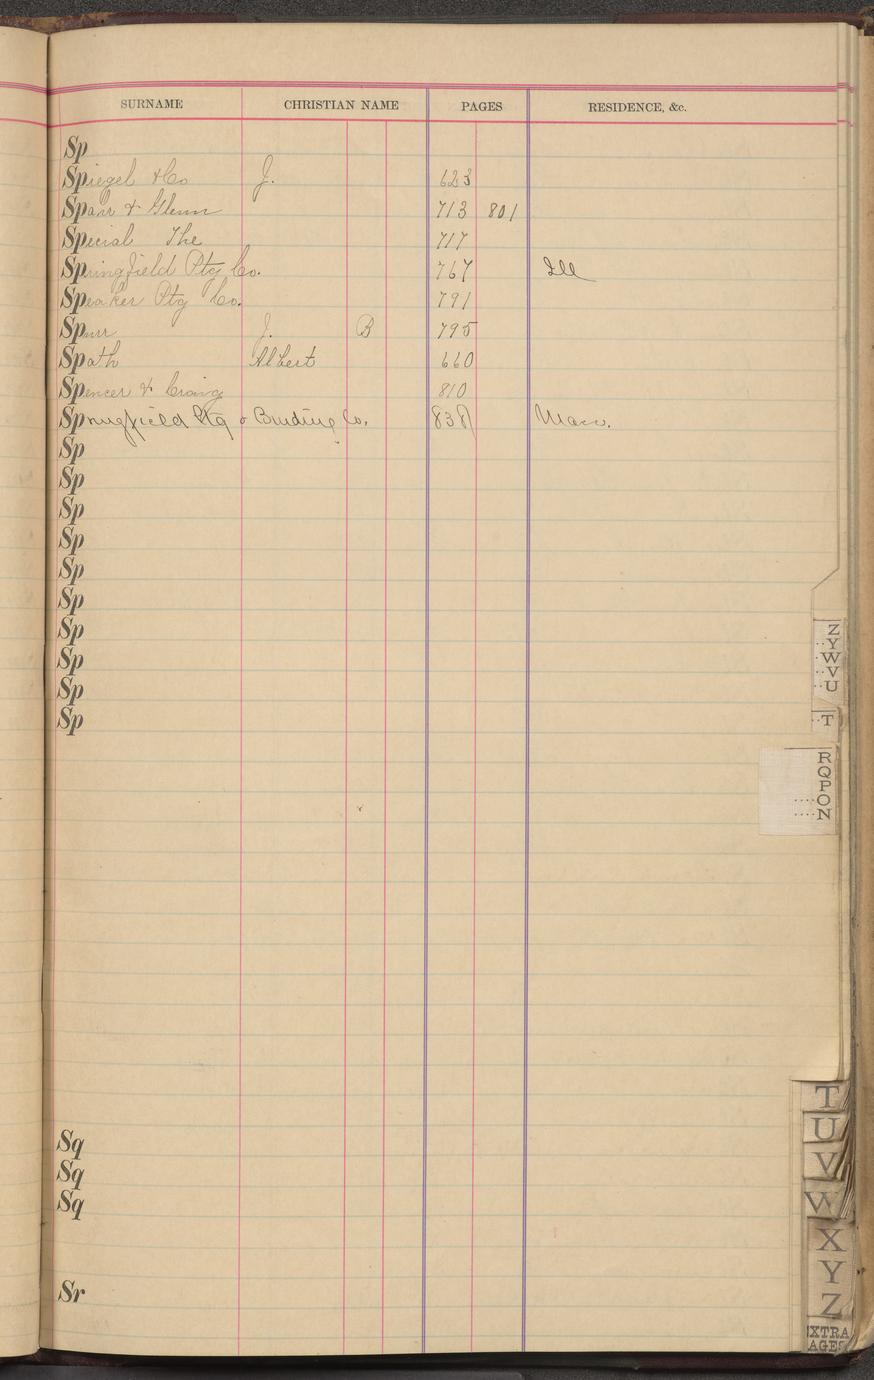 SURNAME CHRISTIAN NAME PAGES RESIDENCE, &c.
Sp
Spiegel & Co J. 623
Spahr & Glenn 713 801
Special The 717
Springfield Ptg Co. 767 Ill
Speaker Ptg Co. 791
Spurr J. B 795
Spath Albert 660
Spencer & Craig 810
Springfield Ptg & Binding Co. 838 Mass.
Sp
Sp
Sp
Sp
Sp
Sp
Sp
Sp
Sp
Sp
Sq
Sq
Sq
Sr
Z
Y
W
V
U
T
R
Q
P
O
N
T
U
V
W
X
Y
Z
EXTRA
AGES